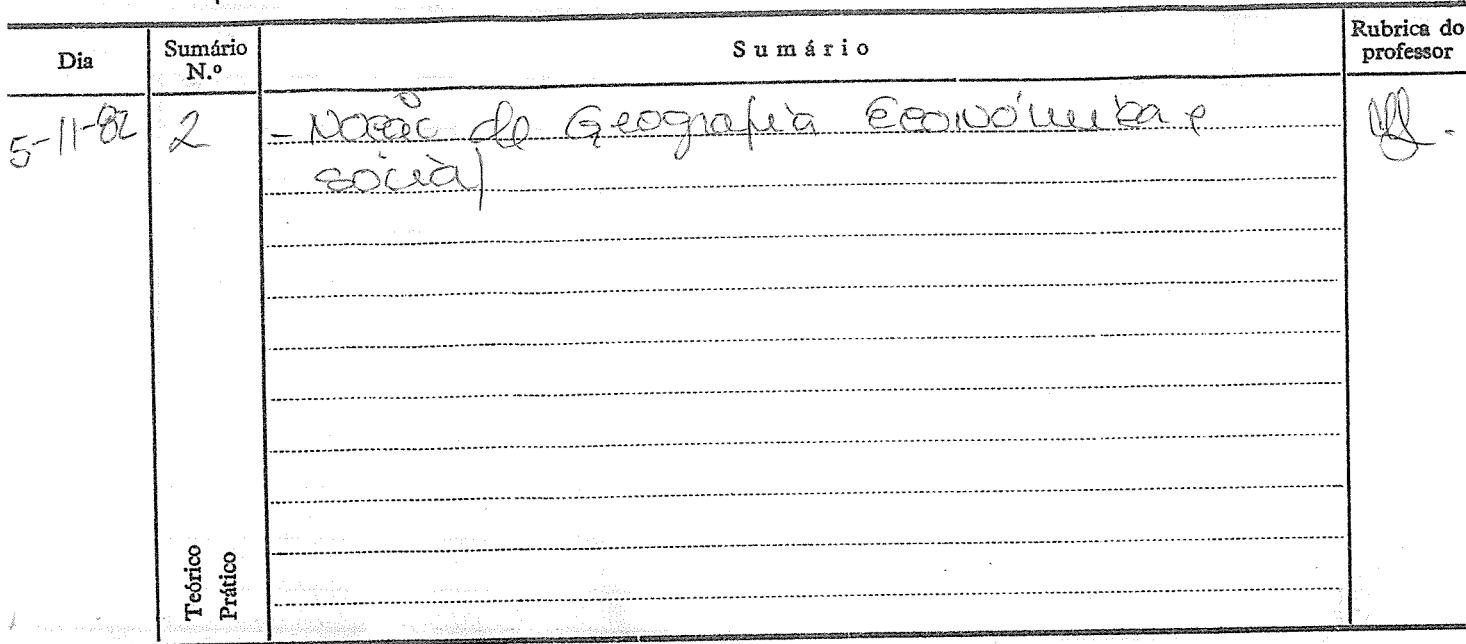 Dia
Sumário N.º
Sumário
Rubrica do professor
5-11-82
2
- Noção de Geografia Económica e
social
Teórico
Prático